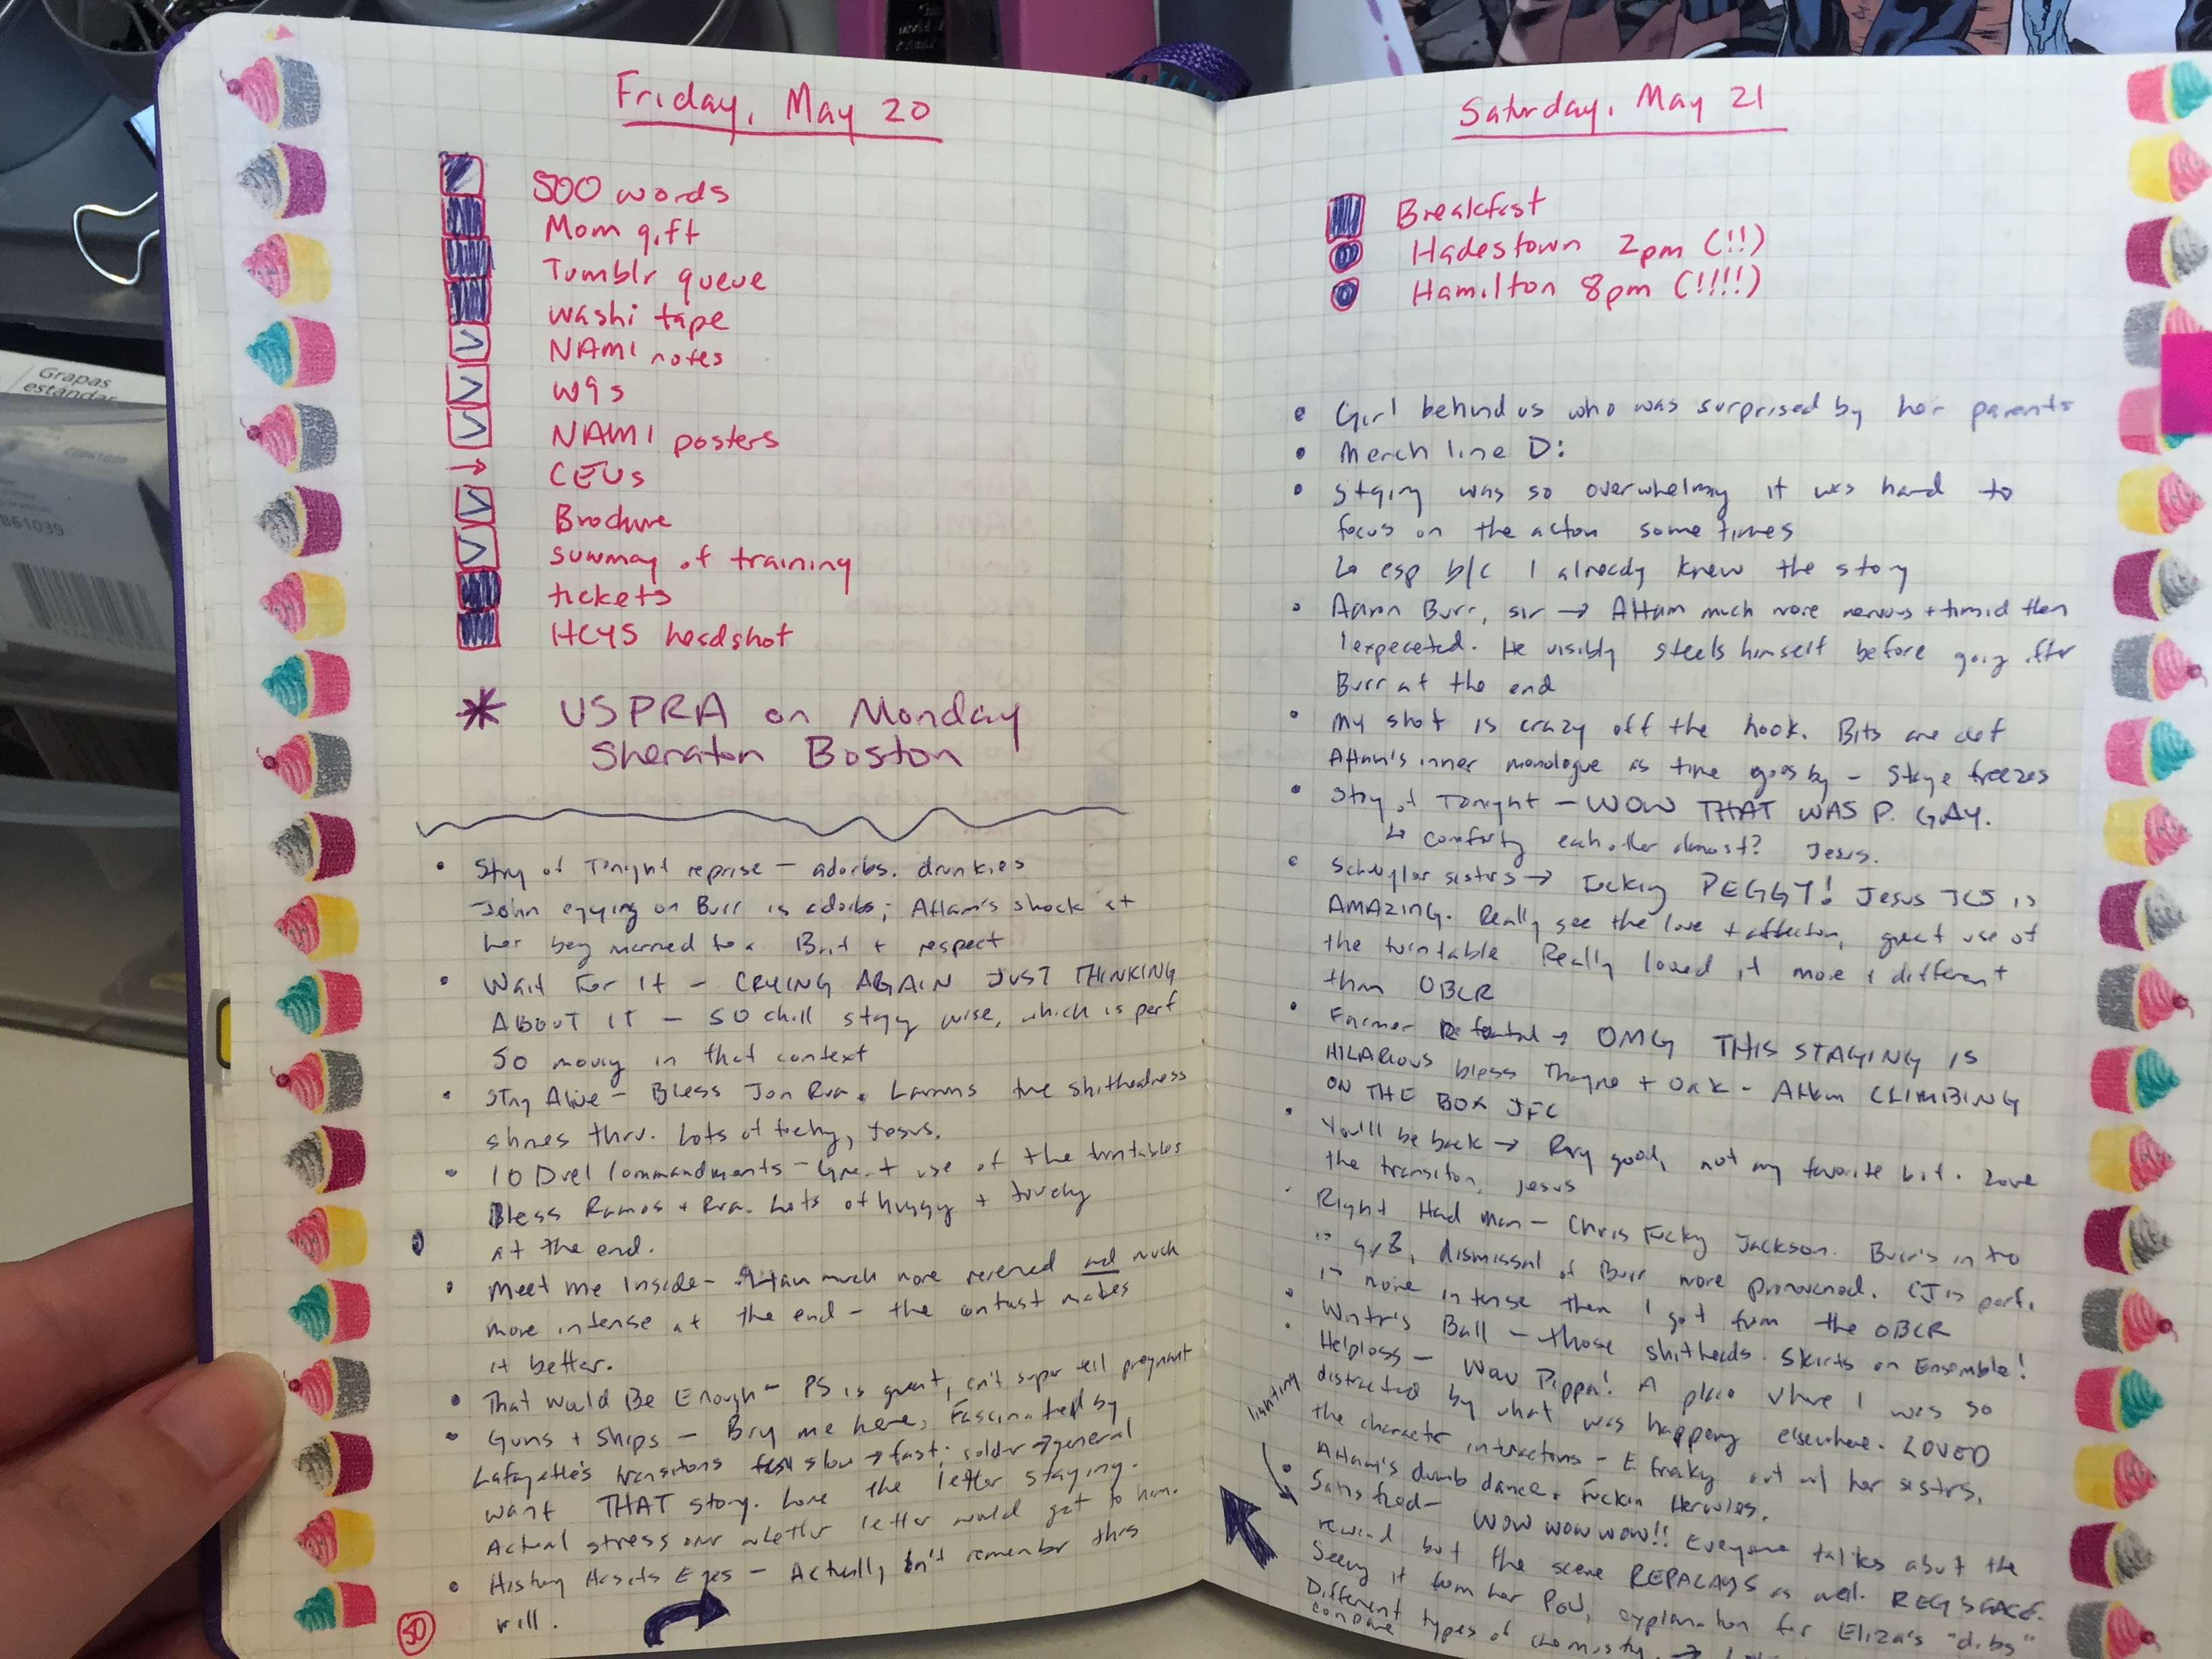 Friday, May 20
500 words
Mom gift
Tumblr queue
washi tape
NAMI notes
W9s
NAMI posters
CEUs
Brochure
summay of training
tickets
HCYS headshot
* USPRA on Monday
Sheraton Boston
• Stry of Tonight reprise – adorbs. drunkies
John egging on Burr is adorbs; AHam's shock at
her being married to a Brit + respect
• Wait For It – CRYING AGAIN JUST THINKING
ABOUT IT – SO chill stagy wise, which is perf
So moving in that context
• Stay Alive – Bless Jon Rua. Laurens true shitheadness
shines thru. Lots of touchy, Jesus.
• 10 Duel Commandments – Great use of the turntables
Bless Ramos + Rua. Lots of huggy + touchy
at the end.
• Meet me Inside – AHam much more reserved and much
more intense at the end – the contrast makes
it better.
• That Would Be Enough – PS is great, can't super tell pregnant
• Guns + Ships – Bury me here, Fascinated by
Lafayette's transitons slow → fast; soldier → general
want THAT story. Love the letter staging.
Actual stress over whether letter would get to him.
• History Has its Eyes – Actually don't remember this
well.
50
Saturday, May 21
Breakfast
Hadestown 2pm (!!)
Hamilton 8pm (!!!!)
• Girl behind us who was surprised by her parents
• Merch line D:
• Staging was so overwhelming it was hard to
focus on the action some times
↳ esp b/c I already knew the story
• Aaron Burr, sir → AHam much more nervous + timid then
I expeceted. He visibly steels himself before going after
Burr at the end
• My shot is crazy off the hook. Bits are def
AHam's inner monologue as time goes by – Stage freezes
• Stry of Tonight – WOW THAT WAS P. GAY.
↳ comforting each other almost? Jesus.
• Schuyler sisters → Fucking PEGGY! Jesus JCJ is
AMAZING. Really see the love + affection, great use of
the turntable. Really loved it more + different
than OBCR
• Farmer Refuted → OMG THIS STAGING IS
HILARIOUS bless Thayne + Oak – AHam CLIMBING
ON THE BOX JFC
• You'll be back → Rory good, not my favorite bit. Love
the transiton, jesus
• Right Hand man – Chris Fucking Jackson. Burr's intro
is dismissal of Burr more pronounced. CJ is perf.
is more intense then I got from the OBCR
• Wintr's Ball – those shitheads. Skirts on Ensemble!
• Helpless – Wow Pippa! A place where I was so
distracted by what was happening elsewhere. LOVED
the character interactions – E freaky out w/ her sistrs.
AHam's dumb dance. Fuckin Hercules.
lighting
• Satisfied – WOW WOW WOW!! Everyone talks about the
rewind but the scene REPALAYS as well. REG'S FACE.
Seeing it from her POV, explanation for Eliza's "dibs"
Different types of chemistry. →
compare
Grapas
estándar
861039